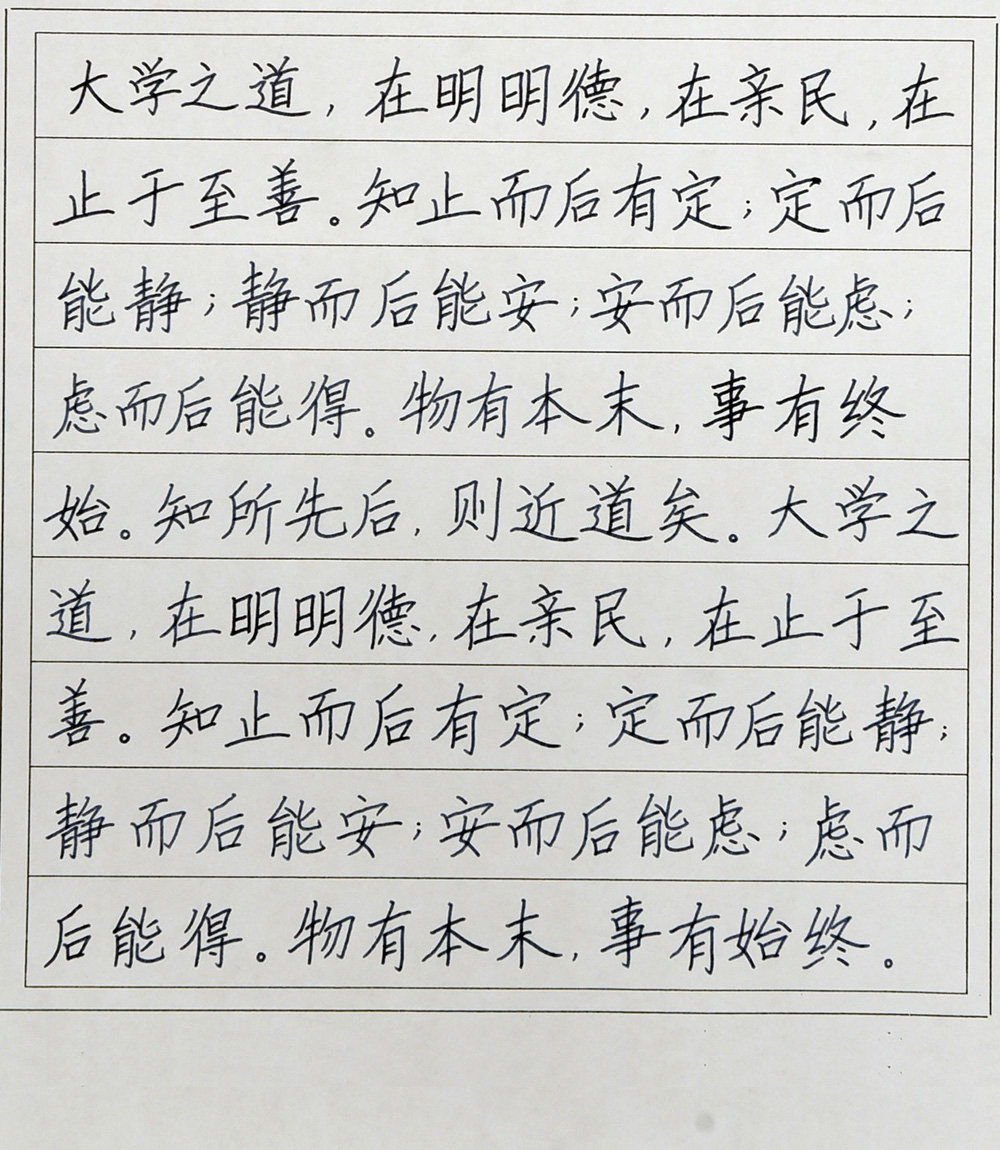 大学之道，在明明德，在亲民，在
止于至善。知止而后有定；定而后
能静；静而后能安；安而后能虑；
虑而后能得。物有本末，事有终
始。知所先后，则近道矣。大学之
道，在明明德，在亲民，在止于至
善。知止而后有定；定而后能静；
静而后能安；安而后能虑；虑而
后能得。物有本末，事有始终。